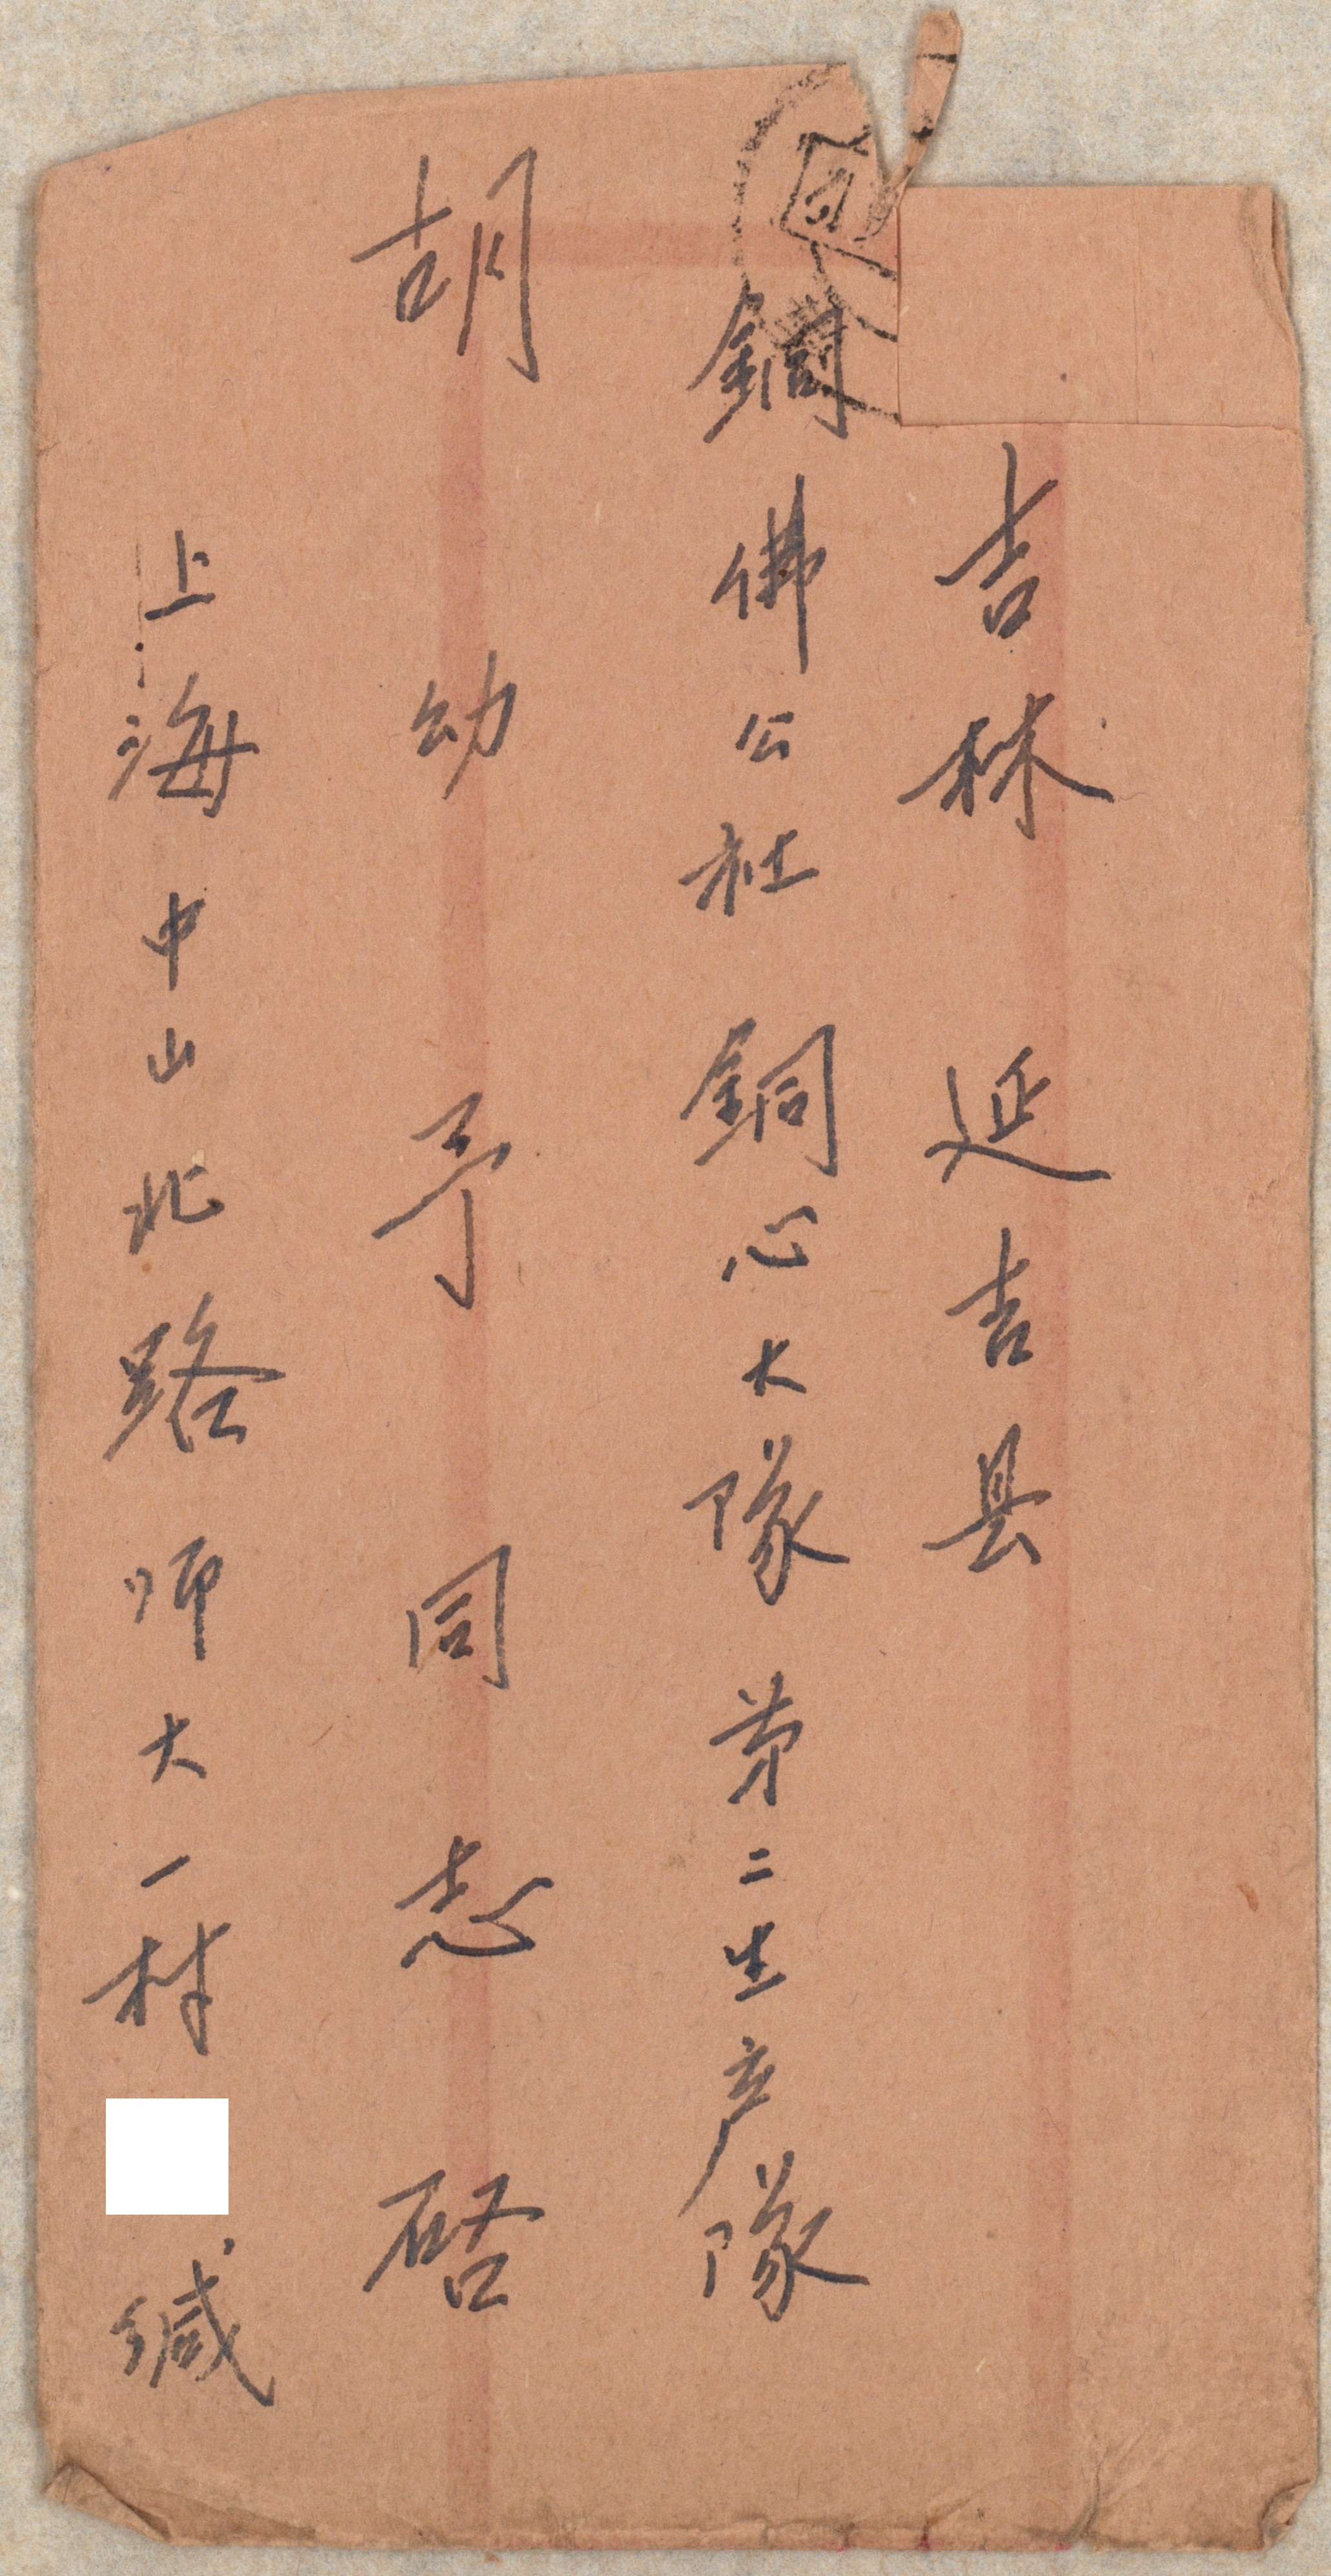 吉林 延吉县
銅佛公社 銅心大隊 第二生产隊
胡幼予同志 啓
上海中山北路师大一村 缄